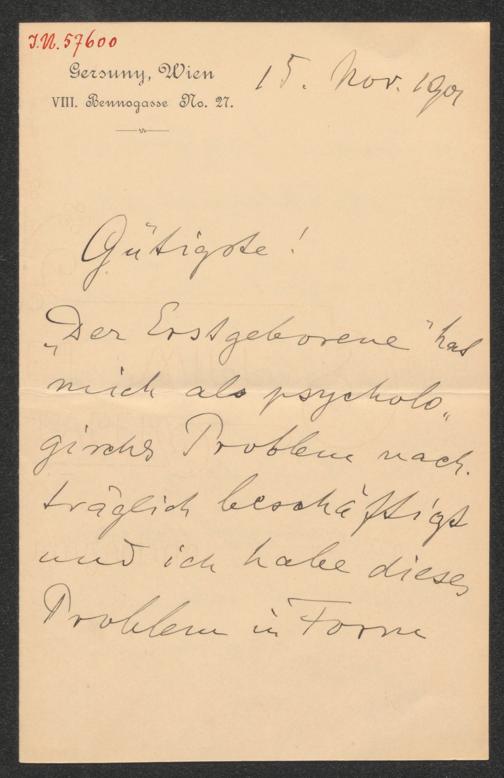 I.N. 57600
Gersuny, Wien
VIII. Bennogasse No. 27.
15. Nov. 1901
Gütigste!
„Der Erstgeborene" hat
mich als psycholo„
gisches Problem nach„
träglich beschäftigt
und ich habe dieses
Problem in Form